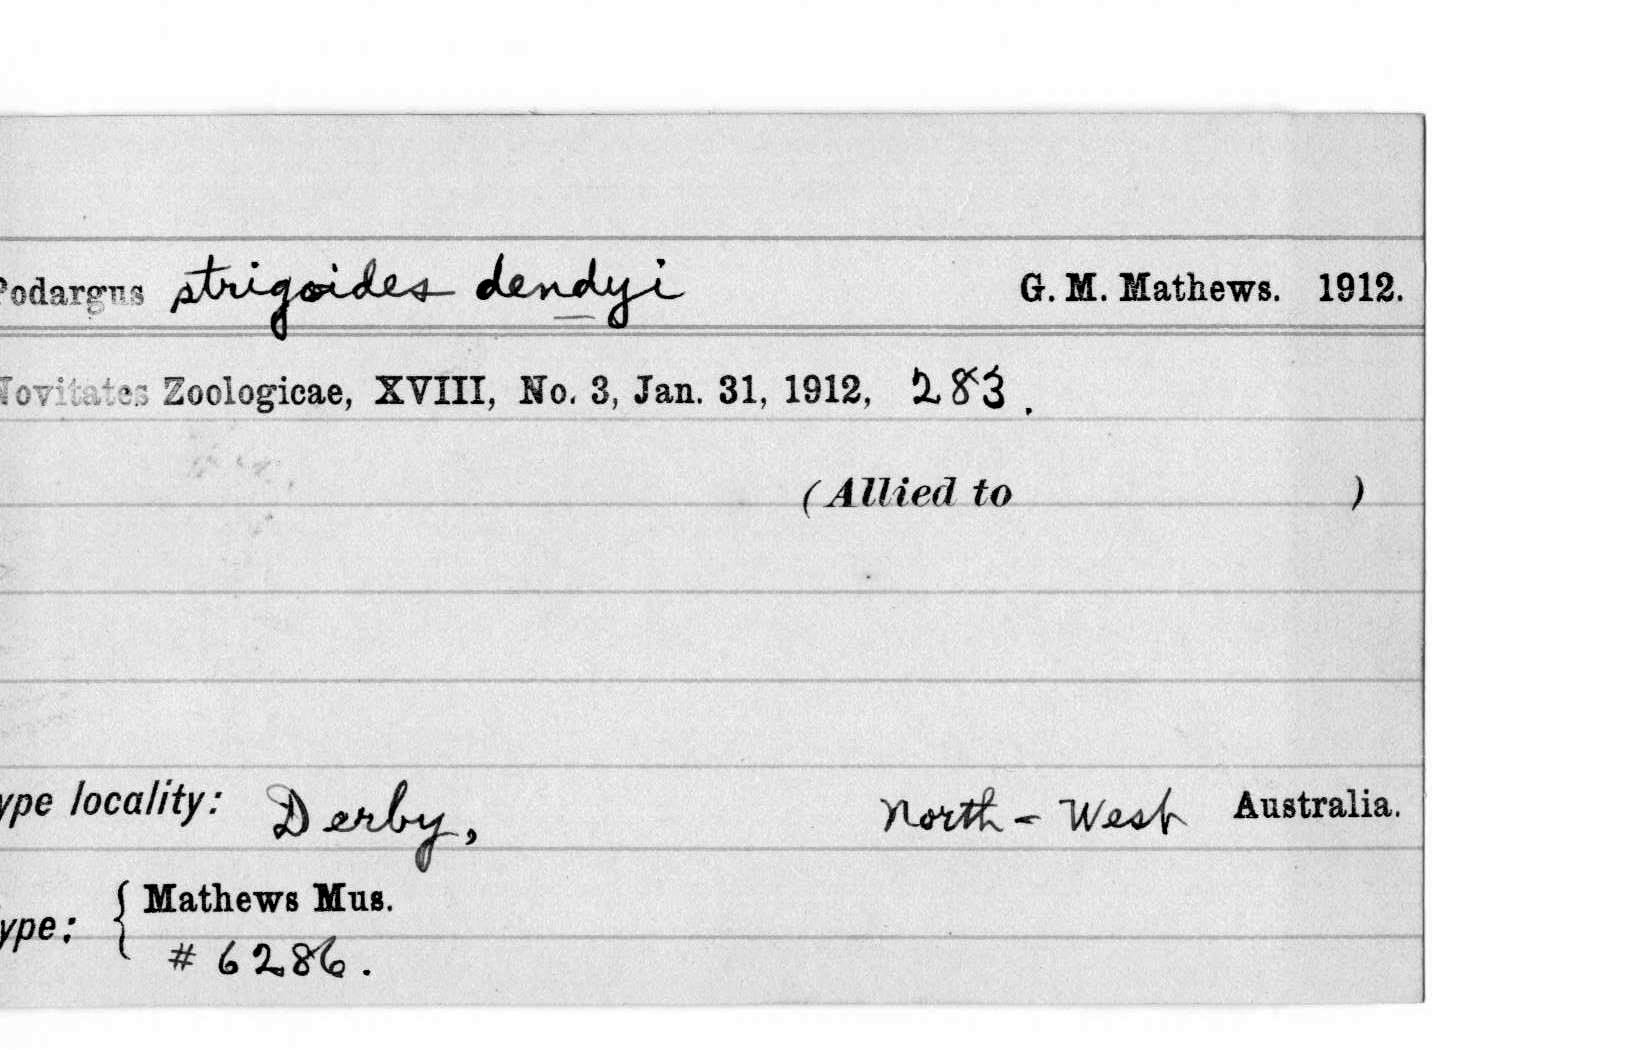 Podargus strigoides dendyi G. M. Mathews. 1912.
Novitates Zoologicae, XVIII, No. 3, Jan. 31, 1912, 283.
(Allied to )
ype locality: Derby, North-West Australia.
ype: { Mathews Mus.
# 6286.